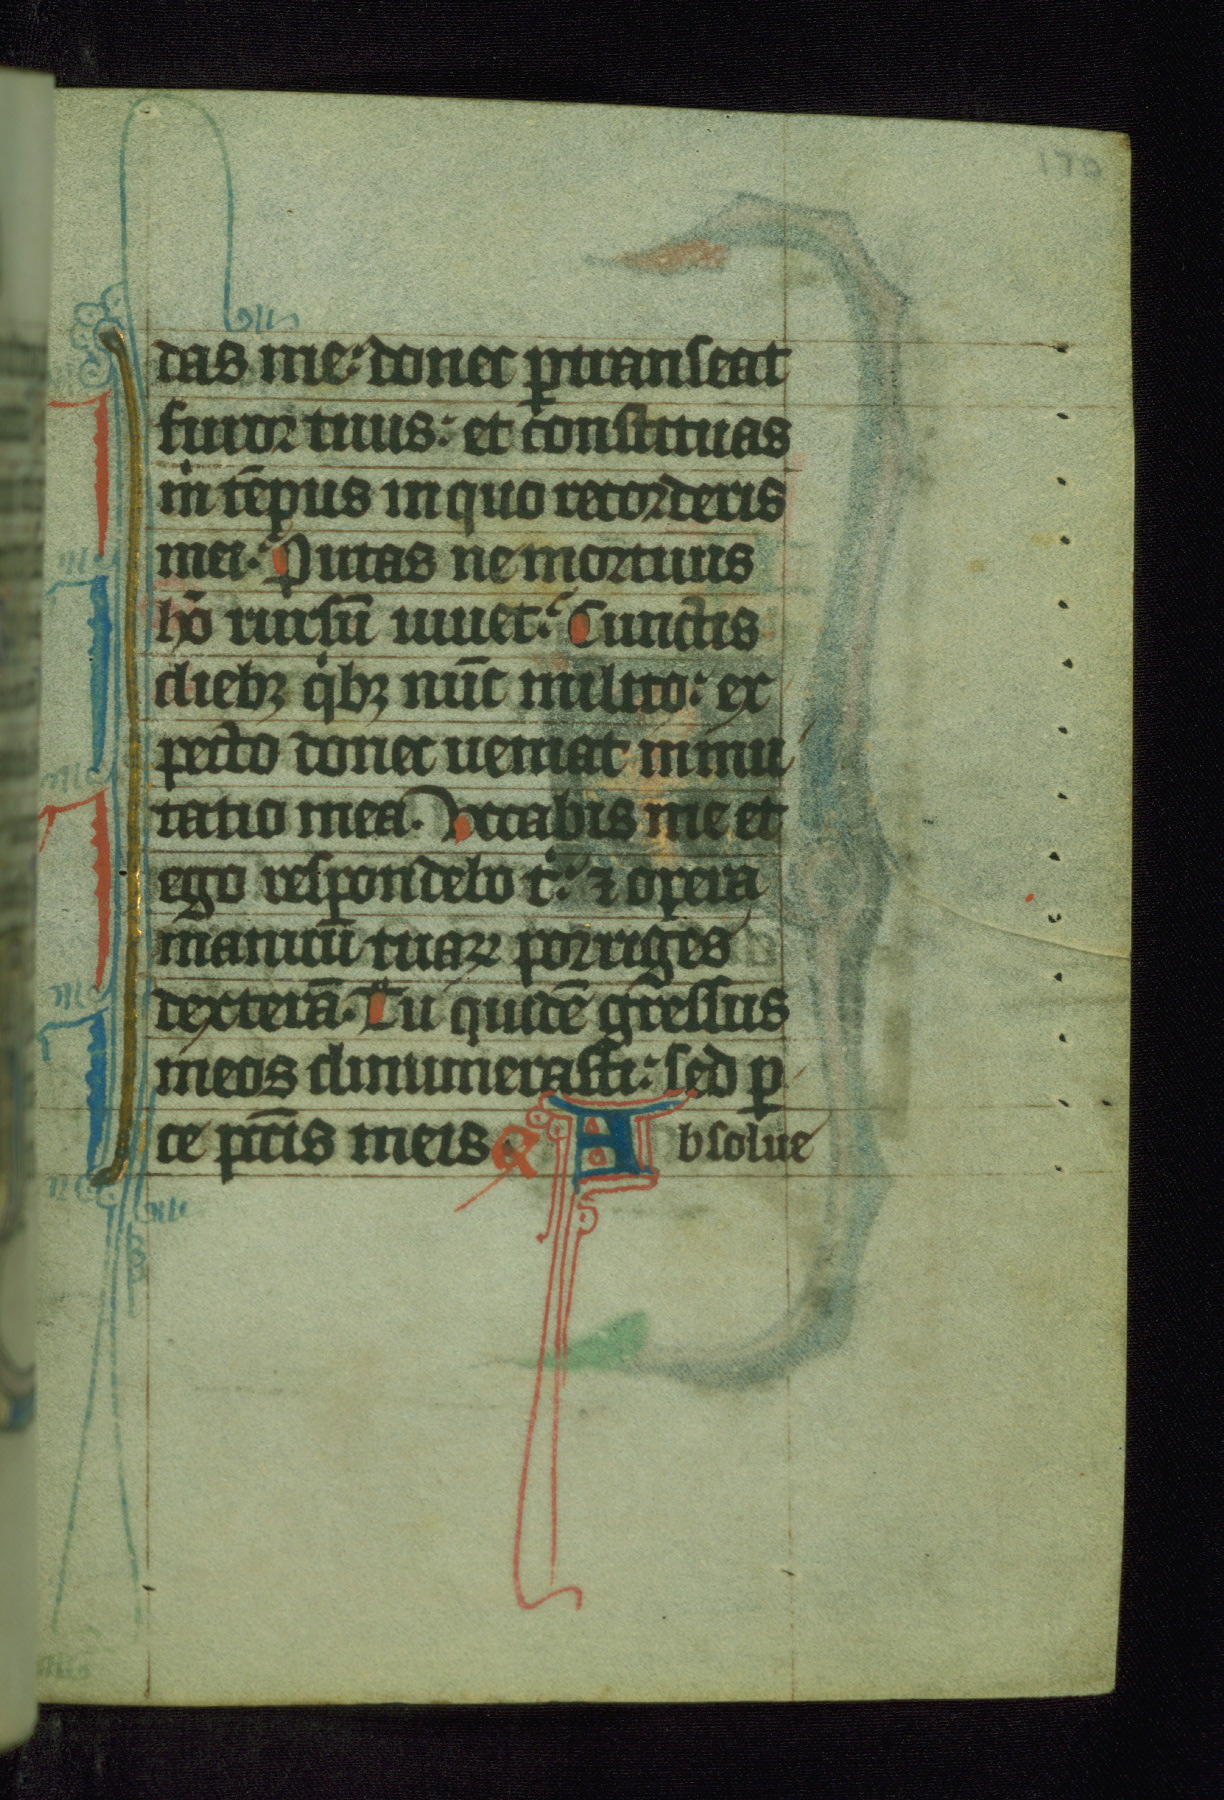 170
das me: donec ꝑtranseat
furor tuus: et constituas
m̍ tēpus in quo recorderis
mei. Putas ne mortuus
hō rursū uiuet: Cunctis
diebꝫ qͥbꝫ nūc milito: ex
pecto donec ueniat inmu
tatio mea. Vocabis me et
ego respondebo t̍: ⁊ opera
manuū tuaꝝ porriges
dexterā. Tu quidē gressus
meos dinumerasti: sed ꝑ
ce pctīs meis. R Absolue